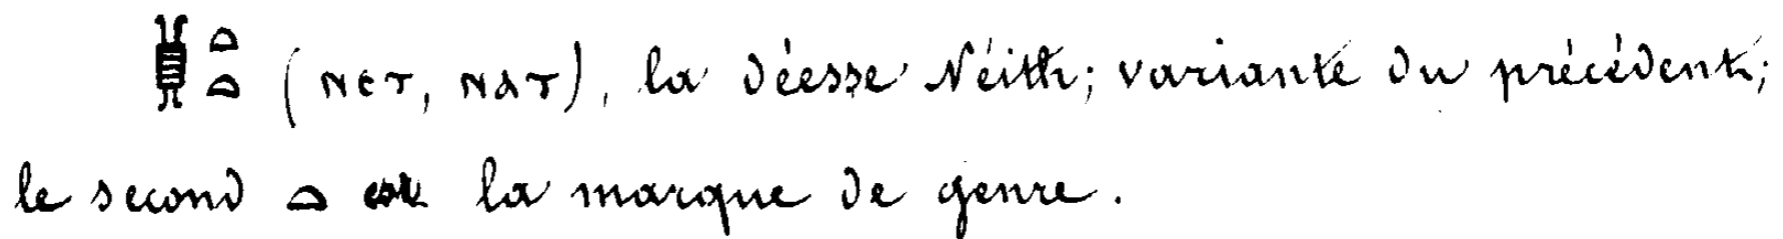 𓋋𓏏𓏏 (ⲛⲉⲧ, ⲛⲁⲧ), la déesse Néith; variante du précédent;
le second 𓏏 est la marque de genre.